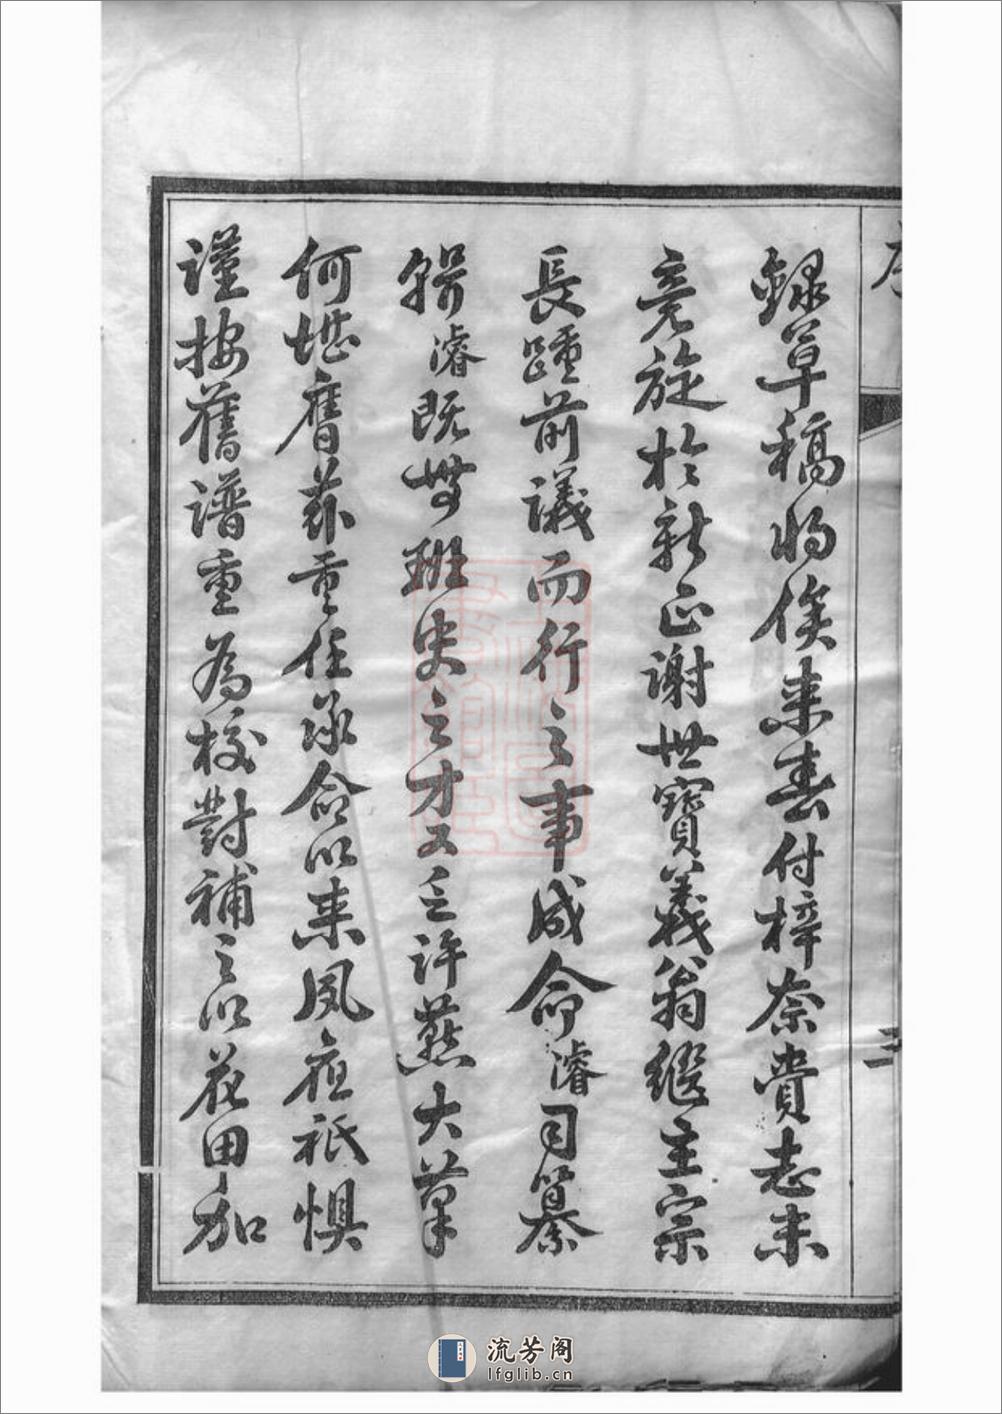 錄草稿將俟来春付梓奈賫志未
竟旋於新正謝世寶義翁繼主宗
長踵前議而行之事成命濬司纂
輯濬既無班史之才又乏許燕大筆
何堪膺茲重任承命以来夙夜祇懼
謹按舊譜重為校對補之以花田加
三
流芳阁
lfglib.cn